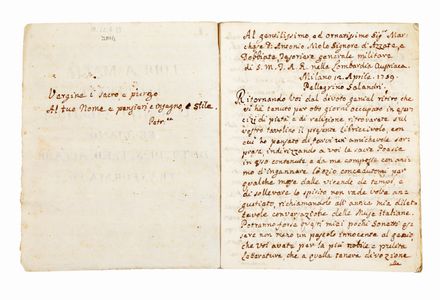 Vergine i' sacro e purgo
Al tuo Nome e pensieri e ingegno, e stile
Petr.ca
Al gentilissimo, ed ornatissimo Sig.r Mar-
chese D. Antonio Molo Signore d'Azzate, e
Dobbiate, Tesoriere generale militare
di S. M. I. A. R. nella Lombardia Austriaca.
Milano 12. Aprile. 1789.
Pellegrino Salandri.
Ritornando Voi dal devoto genial ritiro che
vi ha tenuto per otto giorni occupato in eser-
cizi di pietà e di religione, ritrovarete sul
vostro tavolino il presente Libriccivolo, con
cui ho pensato di farvi un amichevole sor-
presa, indirizzando a voi le sacre Poesie
in esso contenute e da me composte con ani-
mo d'ingannare l'ozio concedutomi per
qualche mese dalle vicende de' tempi, e
di sollevare lo spirito non rade volte an-
gustiato, richiamandolo all' antica mia dilet-
tevole conversazione delle Muse Italiane.
Potranno forse questi miei pochi Sonetti es-
sere non meno un pascolo innocente al genio,
che voi avete per la più nobile e pulita
Letteratura che a quella tenera divozione